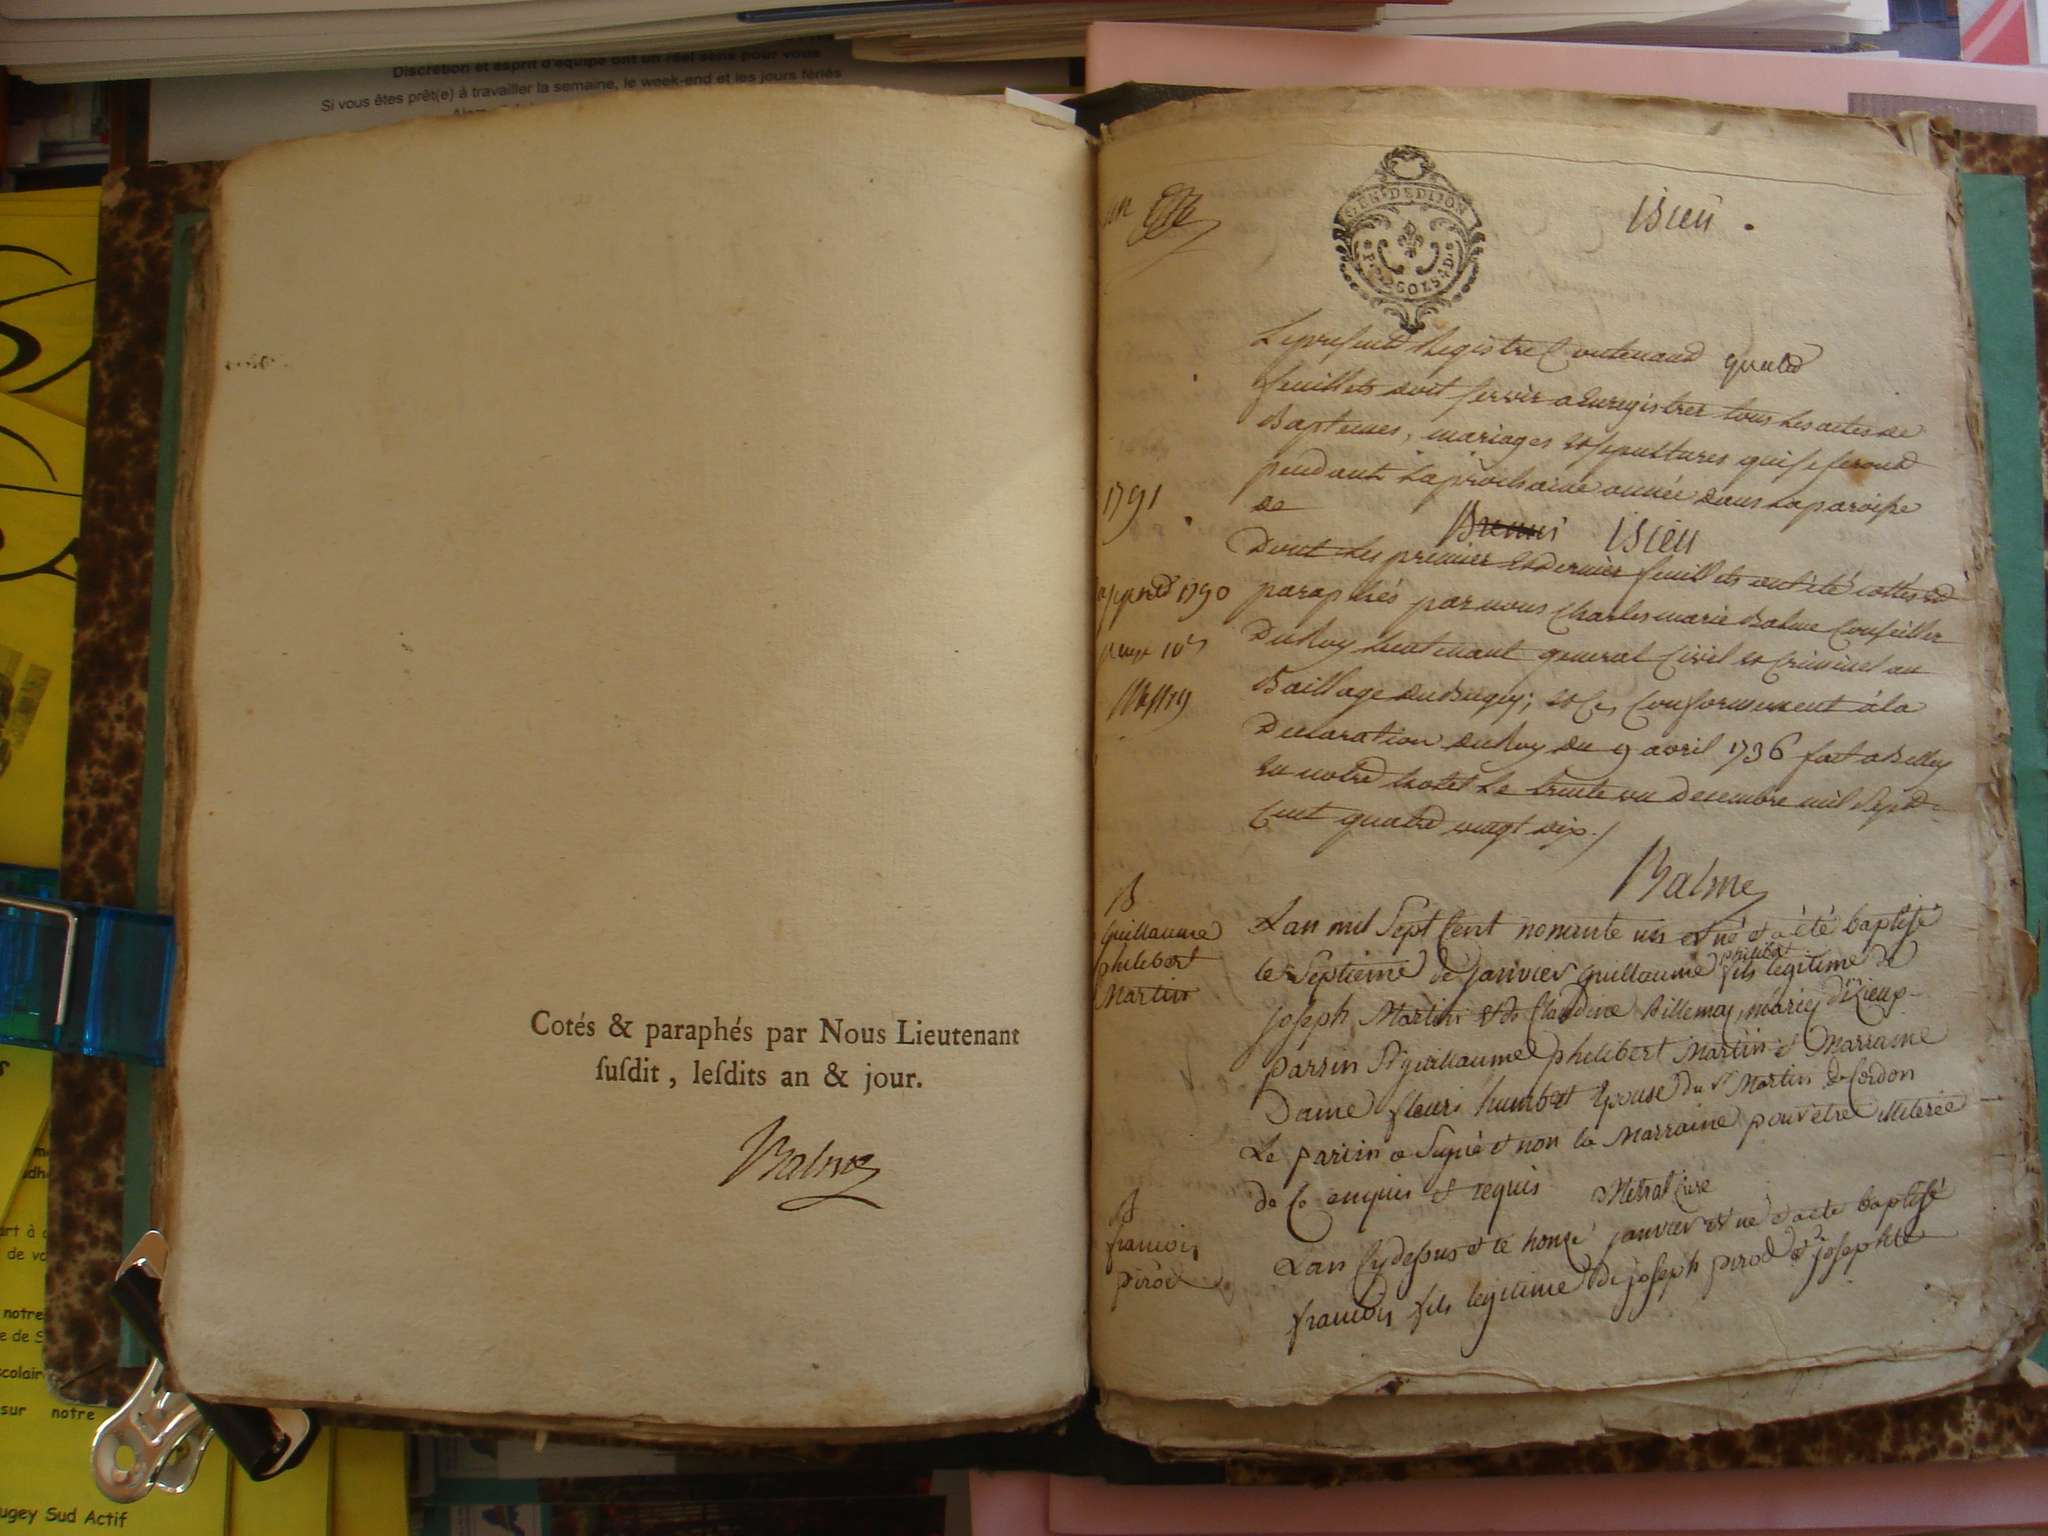 Discrétion et esprit d'équipe ont un réel sens pour vous
Si vous êtes prêt(e) à travailler la semaine, le week-end et les jours fériés
Cotés & paraphés par Nous Lieutenant
ſuſdit, leſdits an & jour.
Balme
GEN. DE DIJON
2 SOLS 4 D.
isieu .
Le present Registre Contenant quatre
feuillets doit servir a Enregistrer tous les actes de
Baptemes, mariages et sepultures qui se feront
pendant la prochaine année dans la paroisse
de
isieu
Dont les premier et dernier feuillets ont été cottés et
paraphés par nous Charles marie Balme Conseiller
Du Roy Lieutenant general Civil et Criminel au
Bailliage du Bugey; et Ce Conformement à la
Declaration du Roy du 9 avril 1736 fait a Belley
en notre hotel le trente un Decembre mil Sept
Cent quatre vingt dix./
Balme
1791
1790
B
Guillaume
philibert
Martin
L'an mil Sept Cent nonante un est né et a été baptisé
le Septieme de janvier Guillaume philibert fils legitime de
joseph Martin et de Claudine Billemaz mariés d'izieup
parrin Sr guillaume philibert Martin et Marraine
Dame fleurie humbert Epouse du Sr Martin de Cordon
Le parrin a Signé et non la Marraine pour être illiterée
de Ce enquis et requis Metral Curé
B
francois
pirod
L'an Cydessus et le honze janvier est né et a été baptisé
francois fils legitime de joseph pirod et de josephte
notre
sur notre
ugey Sud Actif